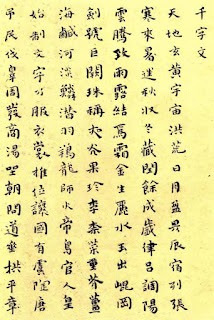 千字文
天地玄黃宇宙洪荒日月盈昃辰宿列張
寒來暑往秋收冬藏閏餘成歲律呂調陽
雲騰致雨露結為霜金生麗水玉出崐岡
劍號巨闕珠稱夜光果珍李柰菜重芥薑
海鹹河淡鱗潛羽翔龍師火帝鳥官人皇
始制文字乃服衣裳推位讓國有虞陶唐
弔民伐罪周發商湯坐朝問道垂拱平章